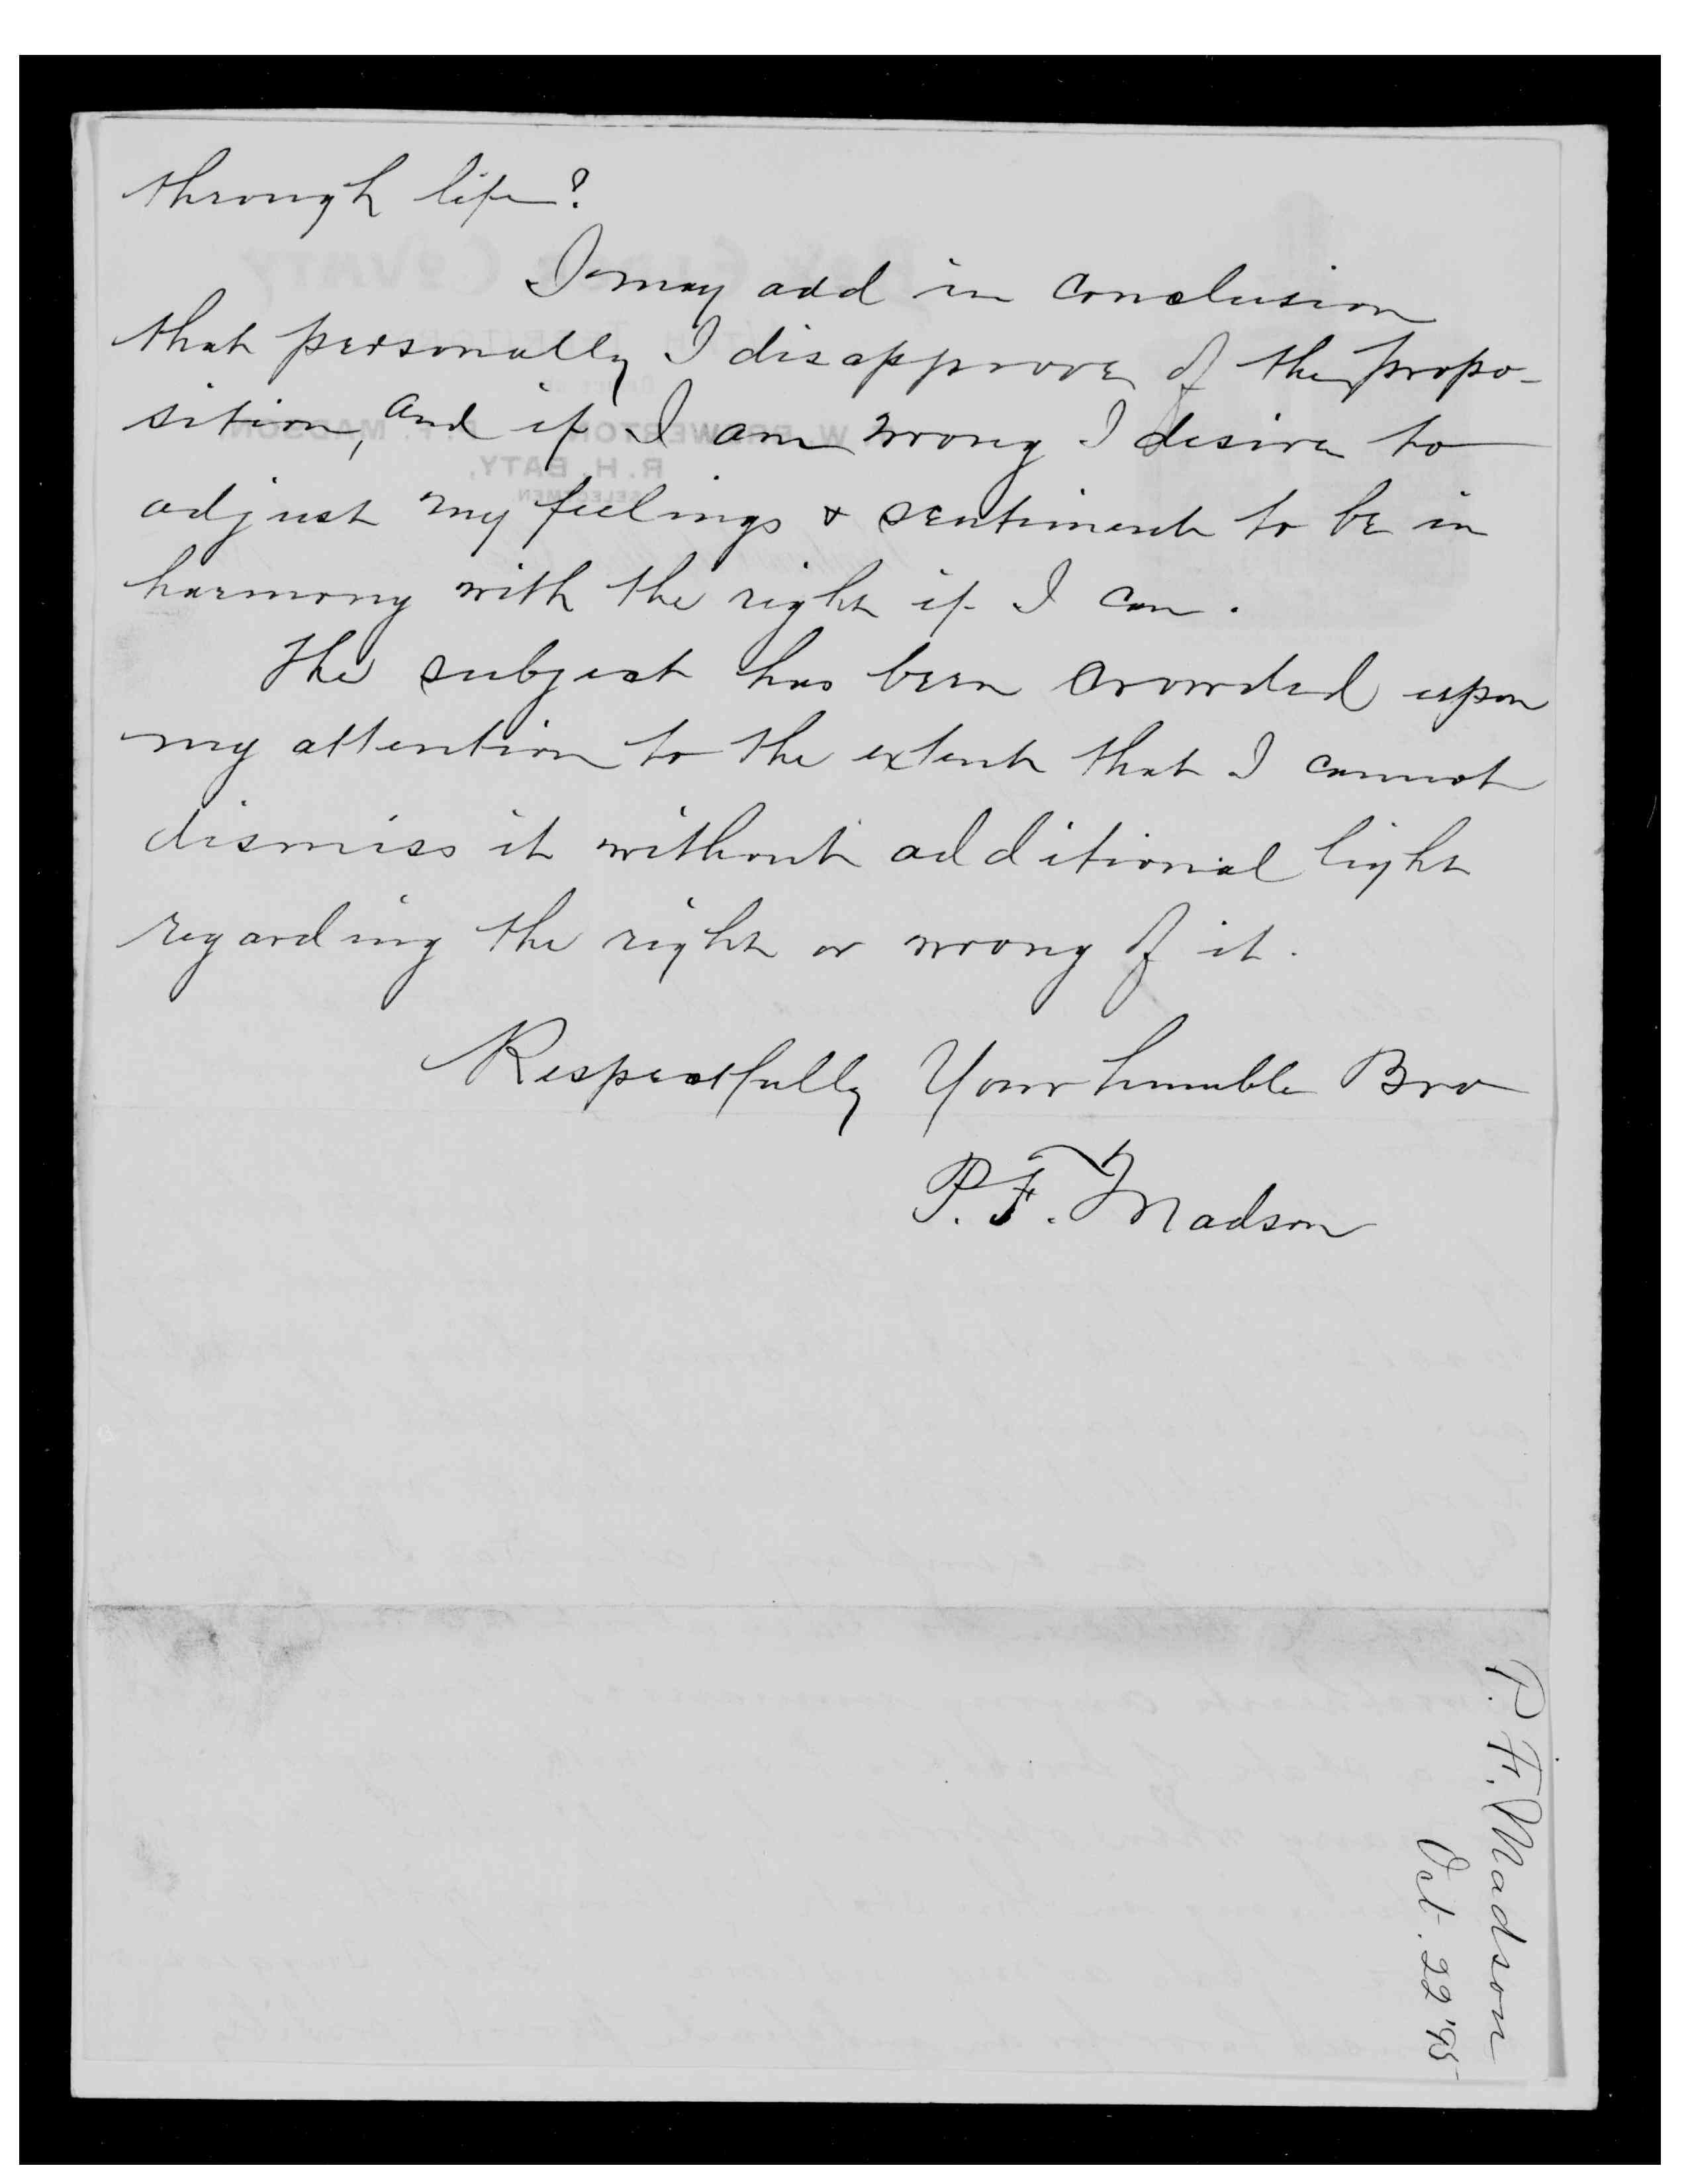 through life?
I may add in conclusion
that personally I disapprove of the propo-
sition, and if I am wrong I desire to
adjust my feelings & sentiment to be in
harmony with the right if I can.
The subject has been crowded upon
my attention to the extent that I cannot
dismiss it without additional light
regarding the right or wrong of it.
Respectfully Your humble Bro
P. F. Madson
P. F. Madson
Oct. 22 '95